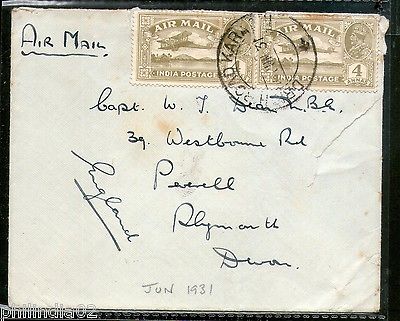 AIR MAIL AIR MAIL
INDIA POSTAGE INDIA POSTAGE
4
AIR MAIL
Capt. W. J.
39 Westbourne Rd
Peverell
Plymouth
Devon.
England
JUN 1931
philindia02 philindia02